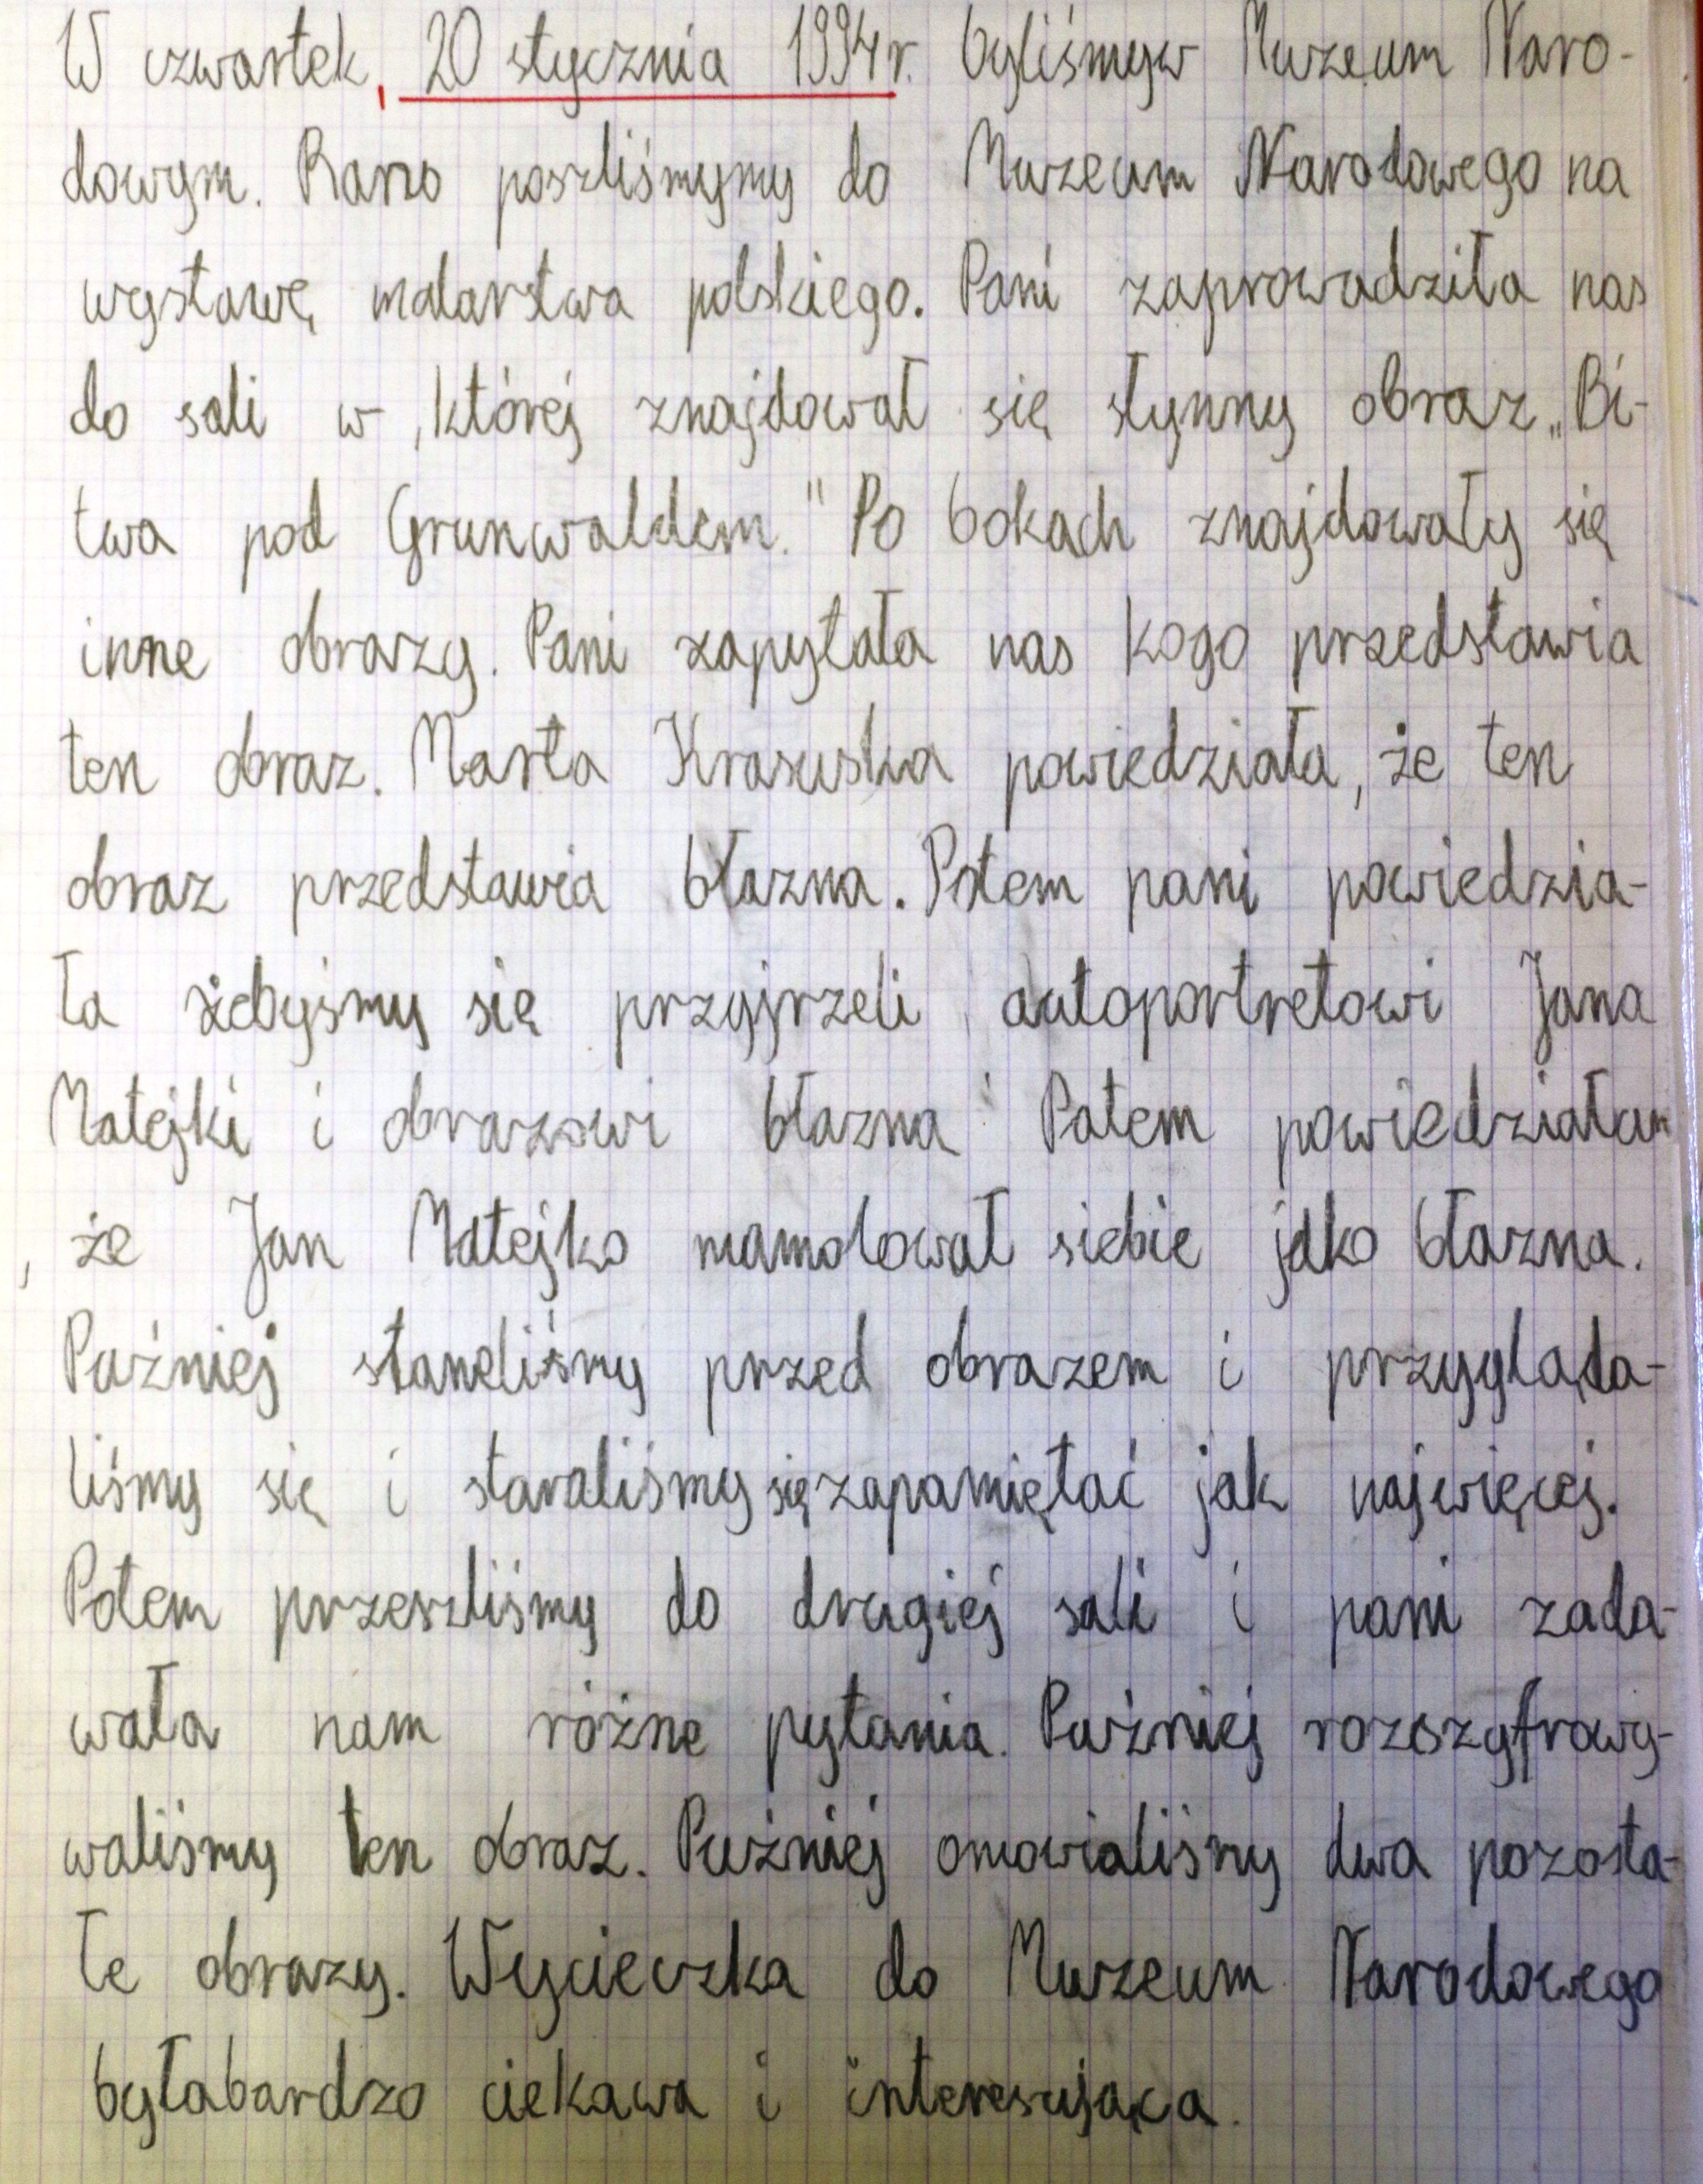 W czwartek, 20 stycznia 1994r. byliśmyw Muzeum Naro-
dowym. Rano poszliśmymy do Muzeum Narodowego na
wystawę malarstwa polskiego. Pani zaprowadziła nas
do sali w ,której znajdował się słynny obraz „Bi-
twa pod Grunwaldem." Po bokach znajdowały się
inne obrazy. Pani zapytała nas kogo przedstawia
ten obraz. Marta Krasuska powiedziała, że ten
obraz przedstawia błazna. Potem pani powiedzia-
ła żebyśmy się przyjrzeli autoportretowi Jana
Matejki i obrazowi błazna Potem powiedziałam
, że Jan Matejko namolował siebie jako błazna.
Puźniej staneliśmy przed obrazem i przygląda-
liśmy się i staraliśmy się zapamiętać jak najwięcej.
Potem przeszliśmy do drugiej sali i pani zada-
wała nam różne pytania. Puźniej rozszyfrowy-
waliśmy ten obraz. Puźniej omowialiśmy dwa pozosta-
łe obrazy. Wycieczka do Muzeum Narodowego
byłabardzo ciekawa i interesująca.